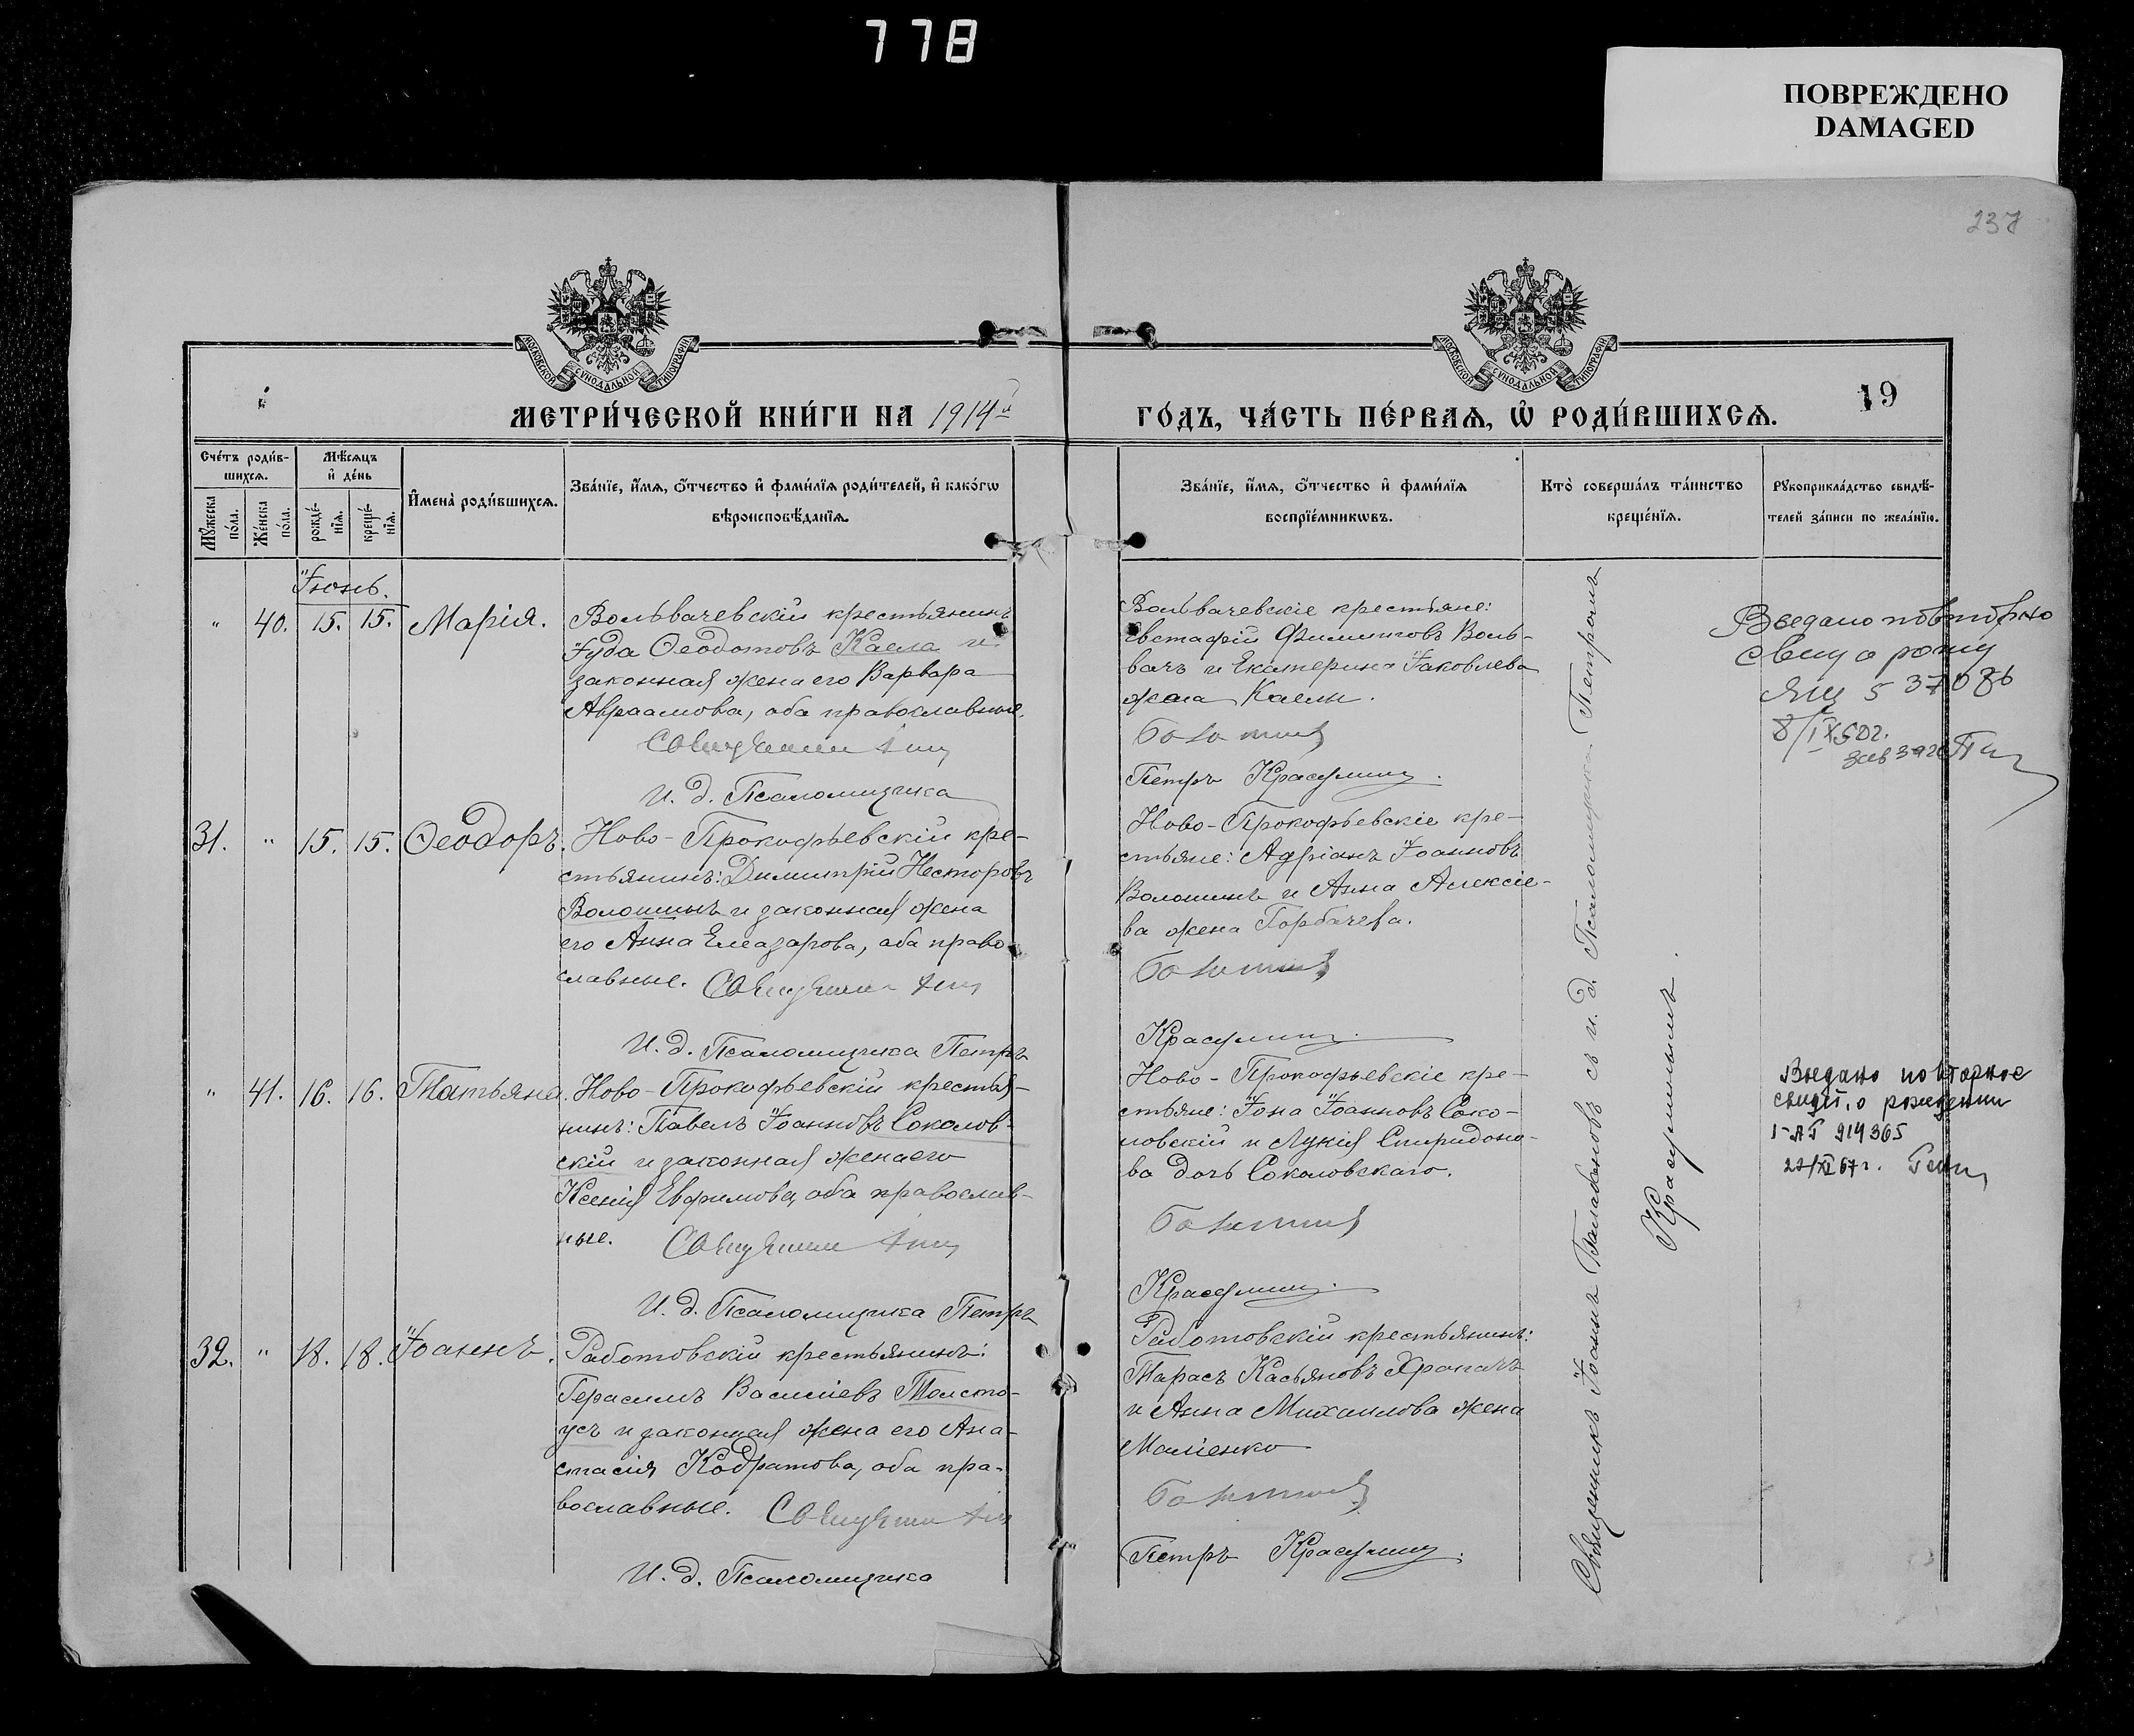 778
ПОВРЕЖДЕНО
DAMAGED
237
МОСКОВСКОЙ СѴНОДАЛЬНОЙ ТИПОГРАФІИ
МОСКОВСКОЙ СѴНОДАЛЬНОЙ ТИПОГРАФІИ
19
МЕТРИ́ЧЕСКОЙ КНИ́ГИ НА 1914й
ГО́ДЪ, ЧА́СТЬ ПЕ́РВАѦ, Ѡ҆ РОДИ́ВШИХСѦ.
Сче́тъ роди́в-
шихсѧ.
Мѣ́сѧцъ
и҆ де́нь
Мꙋ́жеска
по́ла.
Же́нска
по́ла.
рожде́-
нїѧ.
креще́-
нїѧ.
И҆мена̀ роди́вшихсѧ.
Зва́нїе, и҆́мѧ, ѻ҆́тчество и҆ фами́лїѧ роди́телей, и҆ како́гѡ
вѣроисповѣ́данїѧ.
Зва́нїе, и҆́мѧ, ѻ҆́тчество и҆ фами́лїѧ
воспрїе́мникѡвъ.
Кто̀ соверша́лъ та́инство
креще́нїѧ.
Рꙋкоприкла́дство свидѣ́-
телей за́писи по жела́нїю.
Іюнь.
" 40. 15. 15. Марія.
Вольвачевскій крестьянинъ
Іуда Ѳеодотовъ Каела и
законная жена его Варвара
Авраамова, оба православные.
И. д. Псаломщика
Вольвачевскіе крестьяне:
Евстафій Филипповъ Воль-
вачъ и Екатерина Іаковлева
жена Каелы.
Петръ Красулинъ.
Выдано повторно
свид о рожд
8/IX 50г.
31. " 15. 15. Ѳеодоръ.
Ново-Прокофьевскій кре-
стьянинъ: Димитрій Несторовъ
Волошинъ и законная жена
его Анна Елеазарова, оба право-
славные.
И. д. Псаломщика Петръ
Ново-Прокофьевскіе кре-
стьяне: Адріанъ Іоанновъ
Волошинъ и Анна Алексіе-
ва жена Горбачева.
Красулинъ.
" 41. 16. 16. Татьяна.
Ново-Прокофьевскій крестья-
нинъ: Павелъ Іоанновъ Соколов-
скій и законная жена его
Ксенія Евфимова, оба православ-
ные.
И. д. Псаломщика Петръ
Ново-Прокофьевскіе кре-
стьяне: Іона Іоанновъ Соко-
ловскій и Лукія Спиридоно-
ва дочь Соколовскаго.
Красулинъ.
Выдано повторное
свидет. о рождении
914365
67г.
32. " 18. 18. Іоаннъ.
Работовскій крестьянинъ:
Герасимъ Василіевъ Толсто-
усъ и законная жена его Ана-
стасія Кодратова, оба пра-
вославные.
И. д. Псаломщика
Работовскій крестьянинъ:
Тарасъ Касьяновъ Хропачъ
и Анна Михаилова жена
Маліенко
Петръ Красулинъ.
Священникъ Іоаннъ Балабановъ съ и. д. Псаломщика Петромъ
Красулинымъ.